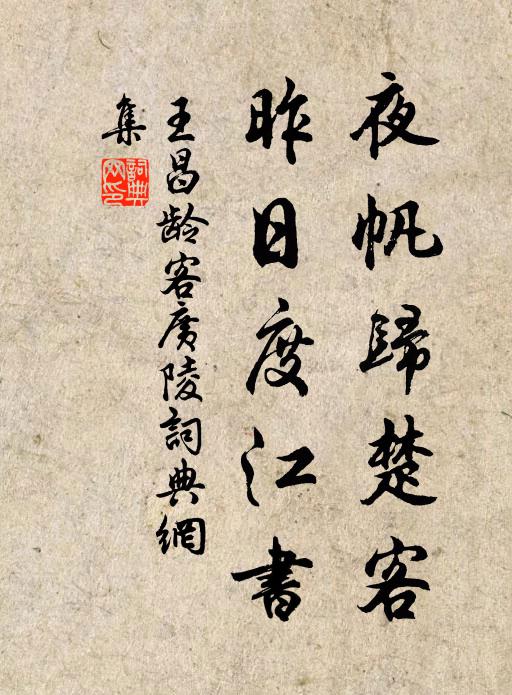 夜帆歸楚客
昨日度江書
王昌齡客廣陵詞典網
集
詞典網印